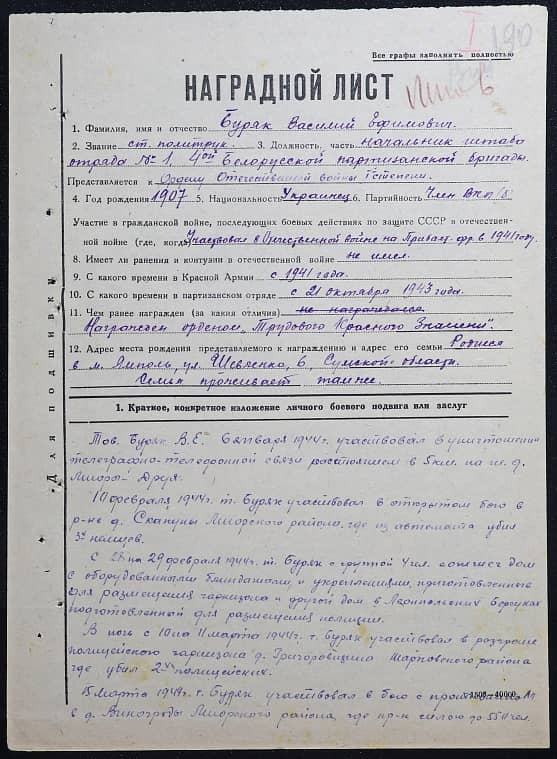 I 190
Все графы заполнять полностью
НАГРАДНОЙ ЛИСТ
1. Фамилия, имя и отчество Буряк Василий Ефимович.
2. Звание ст. политрук. 3. Должность, часть начальник штаба
отряда № 1, 4ой Белорусской партизанской бригады.
Представляется к Ордену Отечественной войны I степени.
4. Год рождения 1907 5. Национальность Украинец 6. Партийность Член ВКП/б/
Участие в гражданской войне, последующих боевых действиях по защите СССР и отечествен-
ной войне (где, когда) Участвовал в Отечественной войне на Прибалт. фр. в 1941 году.
8. Имеет ли ранения и контузии в отечественной войне не имел.
9. С какого времени в Красной Армии с 1941 года.
10. С какого времени в партизанском отряде с 21 октября 1943 года.
11. Чем ранее награжден (за какия отличия) не награждался
Награжден орденом „Трудового Красного Знамени".
12. Адрес места рождения представляемого к награждению и адрес его семьи Родился
в м. Ямполь, ул. Шевченко, 6, Сумской области.
Семья проживает там же.
Для подшивки
1. Краткое, конкретное изложение личного боевого подвига или заслуг
Тов. Буряк В.Е. 6 января 1944 г. участвовал в уничтожении
телеграфно-телефонной связи расстоянием в 5 км. на ж. д.
Миоры - Друя.
10 февраля 1944 г. т. Буряк участвовал в открытом бою в
р-не д. Скапуны Миорского района, где из автомата убил
3х немцев.
С 28 на 29 февраля 1944 г. т. Буряк с группой 4 чел. сжег дом
с оборудованными блиндажами и укреплениями, приготовленные
для размещения гарнизона и другой дом в Леонпольских
подготовленной для размещения полиции.
В ночь с 10 на 11 марта 1944 г. т. Буряк участвовал в разгроме
полицейского гарнизона д. Григоровщина Шарковского района
где убил 2ух полицейских.
15 марта 1944 г. т. Буряк участвовал в бою с противником
в д. Винограды Миорского района, где пр-к силою до 55 чел.